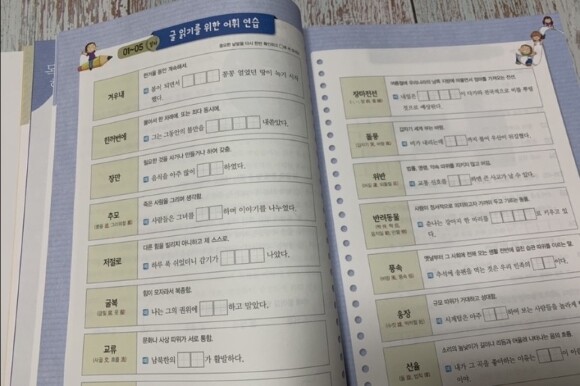 01~05
글 읽기를 위한 어휘 연습
겨우내
한겨울 동안 계속해서.
봄이 되면서 꽁꽁 얼었던 땅이 녹기 시작
했다.
한꺼번에
몰아서 한 차례에, 또는 죄다 동시에.
그는 그동안의 불만을 내쏟았다.
장만
필요한 것을 사거나 만들거나 하여 갖춤.
음식을 아주 많이 하였다.
추모
죽은 사람을 그리며 생각함.
사람들은 그녀를 하며 이야기를 나누었다.
저절로
다른 힘을 빌리지 아니하고 제 스스로.
하루 푹 쉬었더니 감기가 나았다.
굴복
힘이 모자라서 복종함.
나는 그의 권위에 하고 말았다.
교류
문화나 사상 따위가 서로 통함.
남북한의 가 활발하다.
장마전선
여름철에 우리나라의 남쪽 지방에 머물면서 장마를 가져오는 전선.
내일은 이 아사와
돌풍
갑자기 세게 부는 바람.
위반
법률, 명령, 약속 따위를 지키지 않고 어김.
교통 신호를 하면 큰 사고가 날 수 있다.
반려동물
사람이 정서적으로 의지하고자 가까이 두고 기르는 동물.
유나는 강아지 한 마리를 로 키우고 있
다.
풍속
옛날부터 그 사회에 전해 오는 생활 전반에 걸친 습관 따위를 이르는 말.
추석에 송편을 먹는 것은 우리 민족의 이다.
웅장
규모 따위가 거대하고 성대함.
선율
소리의 높낮이가 길이나 리듬과 어울려 나타나는 음의 흐름.
내가 그 곡을 좋아하는 이유는 이 아름